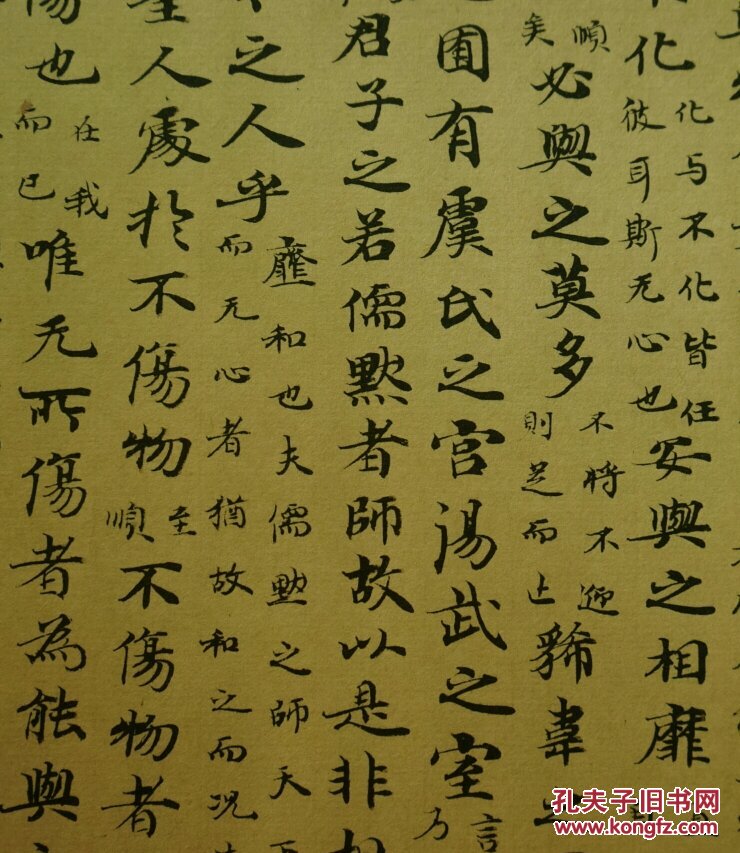 化
化与不化皆任
彼耳斯无心也
安與之相靡
順
矣
必與之莫多
不將不迎
則足而止
豨韋
囿有虞氏之宫湯武之室
言
乃
君子之若儒黙者師故以是非相
之人乎
靡和也夫儒黙之師天
而无心者猶故和之而况
聖人處於不傷物
至
順
不傷物者
傷也
任我
而已
唯无所傷者為能與
孔夫子旧书网
www.kongfz.com